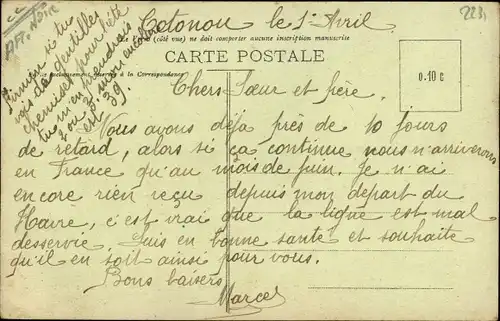 Cotonou le 1er Avril
(côté vue) ne doit comporter aucune inscription manuscrite
CARTE POSTALE
exclusivement réservé à la Correspondance
0.10 c
223
AFR. NOIRE
Firmin si tu
vois de gentilles
chemises pour l'été
tu m'en prendrais
2 ou 3. mon encolure
est 39.
Chers Sœur et frère.
Vous avons déja près de 10 jours
de retard, alors si ça continue nous n'arriverons
en France qu'au mois de juin. Je n'ai
encore rien reçu depuis mon départ du
Havre, c'est vrai que la ligne est mal
desservie. Suis en bonne santé et souhaite
qu'il en soit ainsi pour vous.
Bons baisers
Marcel